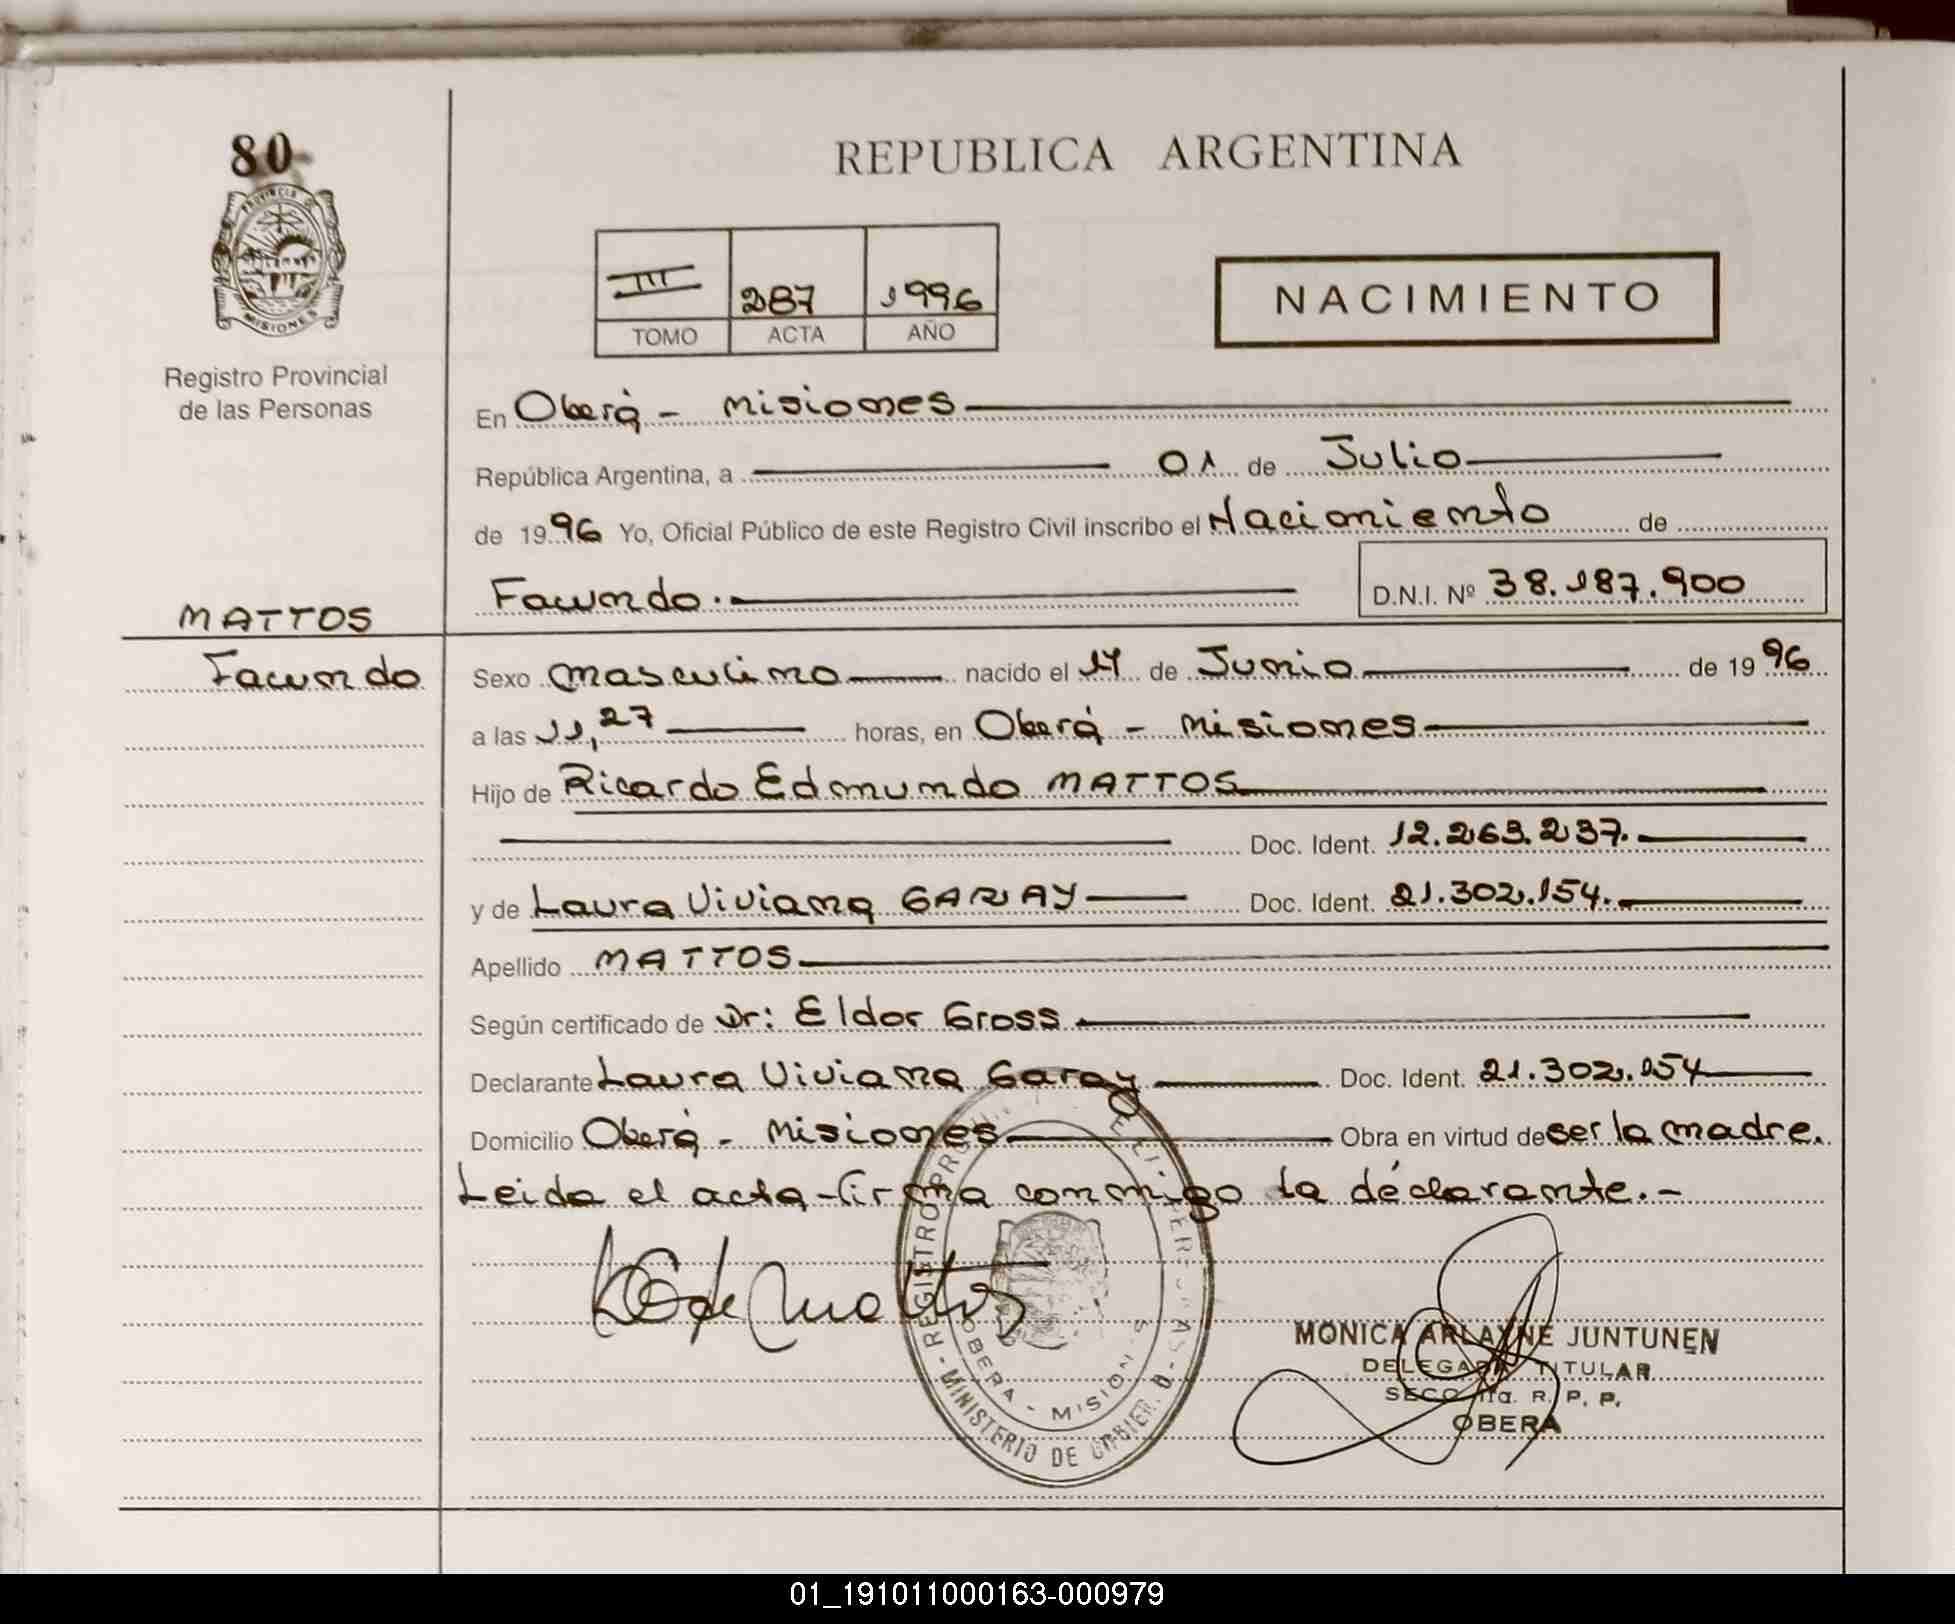 80
PROVINCIA DE
MISIONES
Registro Provincial
de las Personas
MATTOS
Facundo
REPUBLICA ARGENTINA
III 287 1996
TOMO ACTA AÑO
NACIMIENTO
En Oberá - Misiones
República Argentina, a 01 de Julio
de 1996 Yo, Oficial Público de este Registro Civil inscribo el Nacimiento de
Facundo. D.N.I. Nº 38.187.900
Sexo Masculino nacido el 14 de Junio de 1996
a las 11,27 horas, en Oberá - Misiones
Hijo de Ricardo Edmundo MATTOS
Doc. Ident. 12.263.237.
y de Laura Viviana GARAY Doc. Ident. 21.302.154.
Apellido MATTOS
Según certificado de Dr: Eldor Gross
Declarante Laura Viviana Garay Doc. Ident. 21.302.154
Domicilio Oberá - Misiones Obra en virtud de ser la madre.
Leida el acta firma conmigo la declarante.-
REGISTRO
OBERA - MISIONES
MINISTERIO DE
MONICA ARLAYNE JUNTUNEN
DELEGADA TITULAR
R. P. P.
OBERA
01_191011000163-000979